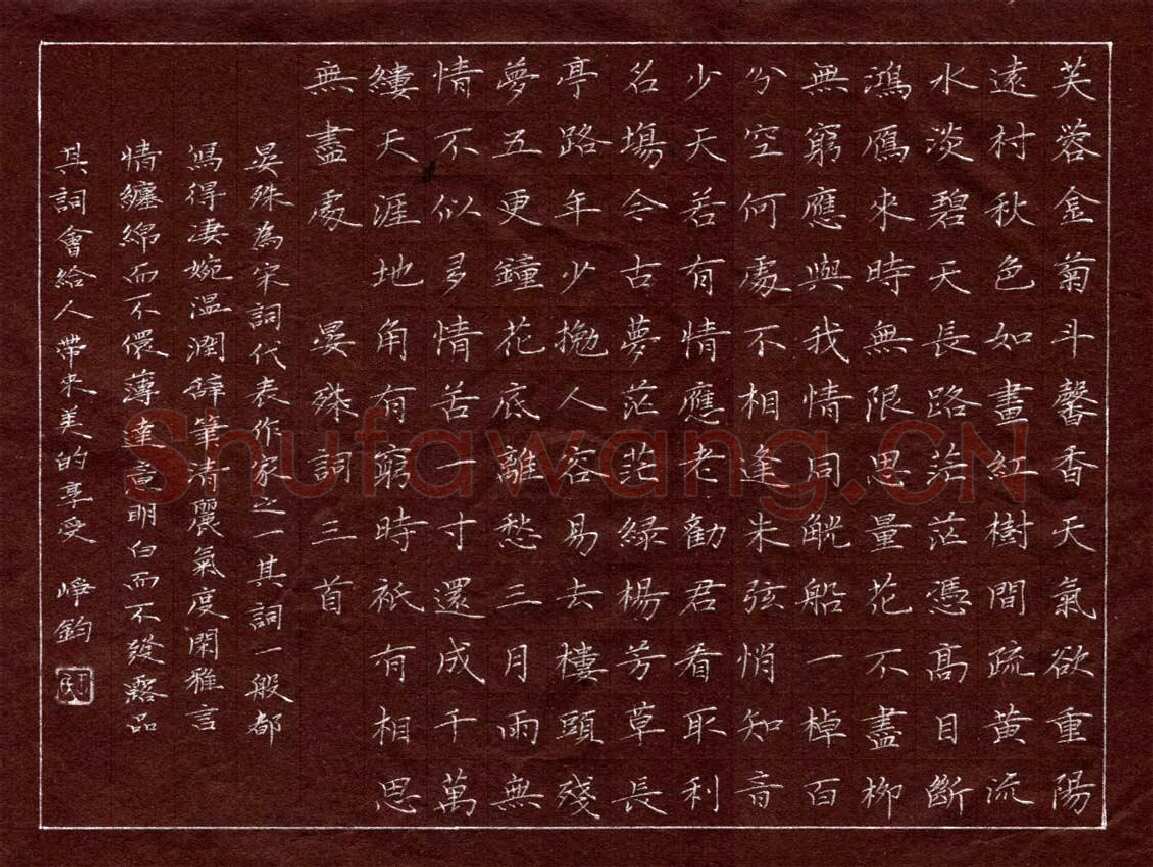 芙蓉金菊斗馨香天氣欲重陽
遠村秋色如畫紅樹間疏黄流
水淡碧天長路茫茫憑高目斷
鴻鴈來時無限思量花不盡柳
無窮應與我情同觥船一棹百
分空何處不相逢朱弦悄知音
少天若有情應老勸君看取利
名塲今古夢茫茫綠楊芳草長
亭路年少抛人容易去樓頭殘
夢五更鐘花底離愁三月雨無
情不似多情苦一寸還成千萬
縷天涯地角有窮時祇有相思
無盡處 晏殊詞三首
晏殊為宋詞代表作家之一其詞一般都
寫得淒婉温潤辭筆清麗氣度閑雅言
情纏綿而不儇薄達意明白而不發露品
其詞會給人帶來美的享受 崢鈞
Shufawang.CN